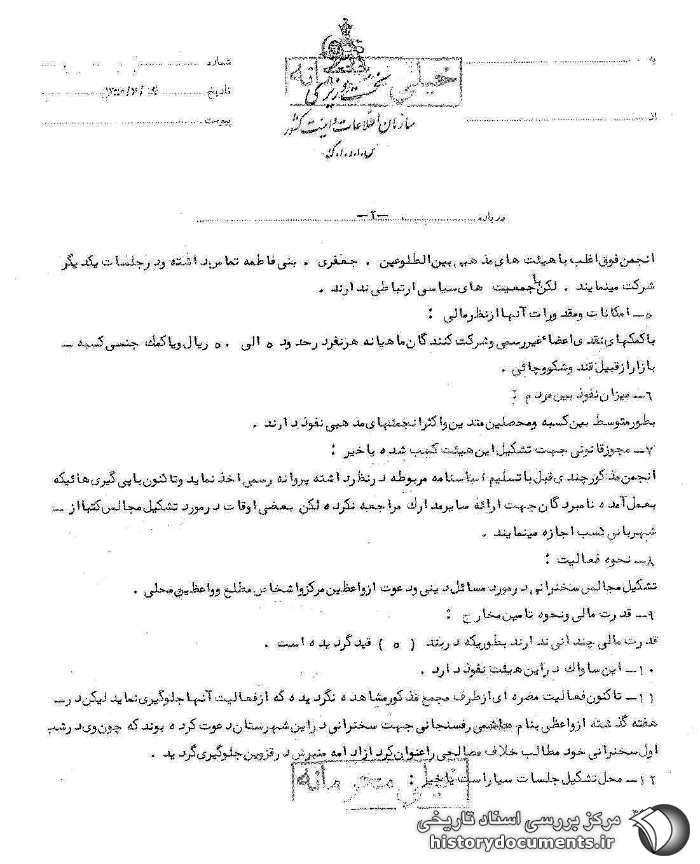 به
شماره
خیلی محرمانه
نخست وزیری
تاریخ
از
سازمان اطلاعات و امنیت کشور
پیوست
س.ا.و.ا.ک
درباره -۲-
انجمن فوق اغلب با هیئت های مذهبی بین الطلوعین . جعفری . بنی فاطمه تماس داشته و در جلسات یکدیگر
شرکت مینمایند . لکن با جمعیت های سیاسی ارتباطی ندارند .
۵- امکانات و مقدورات آنها از نظر مالی :
با کمکهای نقدی اعضاء غیر رسمی و شرکت کنندگان ماهیانه هر نفر در حدود ۵ الی ۵۰ ریال و یا کمک جنسی کسبه -
بازار از قبیل قند و شکر و چائی .
۶- میزان نفوذ بین مردم :
بطور متوسط بین کسبه و محصلین متدین و اکثر انجمنهای مذهبی نفوذ دارند .
۷- مجوز قانونی جهت تشکیل این هیئت کسب شده یا خیر :
انجمن مذکور چندی قبل با تسلیم اساسنامه مربوطه در نظر داشته پروانه رسمی اخذ نماید و تاکنون با پی گیری هائیکه
بعمل آمده نامبردگان جهت ارائه سایر مدارک مراجعه نکرده لکن بعضی اوقات در مورد تشکیل مجالس کتبا از -
شهربانی کسب اجازه مینمایند .
۸- نحوه فعالیت :
تشکیل مجالس سخنرانی در مورد مسائل دینی و دعوت از واعظین مرکز و اشخاص مطلع و واعظین محلی .
۹- قدرت مالی و نحوه تامین مخارج :
قدرت مالی چندانی ندارند بطوریکه در بند ( ۵ ) قید گردیده است .
۱۰- این ساواک در این هیئت نفوذ دارد .
۱۱- تاکنون فعالیت مضره ای از طرف مجمع مذکور مشاهده نگردیده که از فعالیت آنها جلوگیری نماید لیکن در سه
هفته گذشته از واعظی بنام هاشمی رفسنجانی جهت سخنرانی در این شهرستان دعوت کرده بودند که چون وی در شب
اول سخنرانی خود مطالب خلاف مصالحی را عنوان کرد از ادامه منبرش در قزوین جلوگیری گردید .
۱۲- محل تشکیل جلسات سیار است یا خیر :
خیلی محرمانه
مرکز بررسی اسناد تاریخی
historydocuments.ir